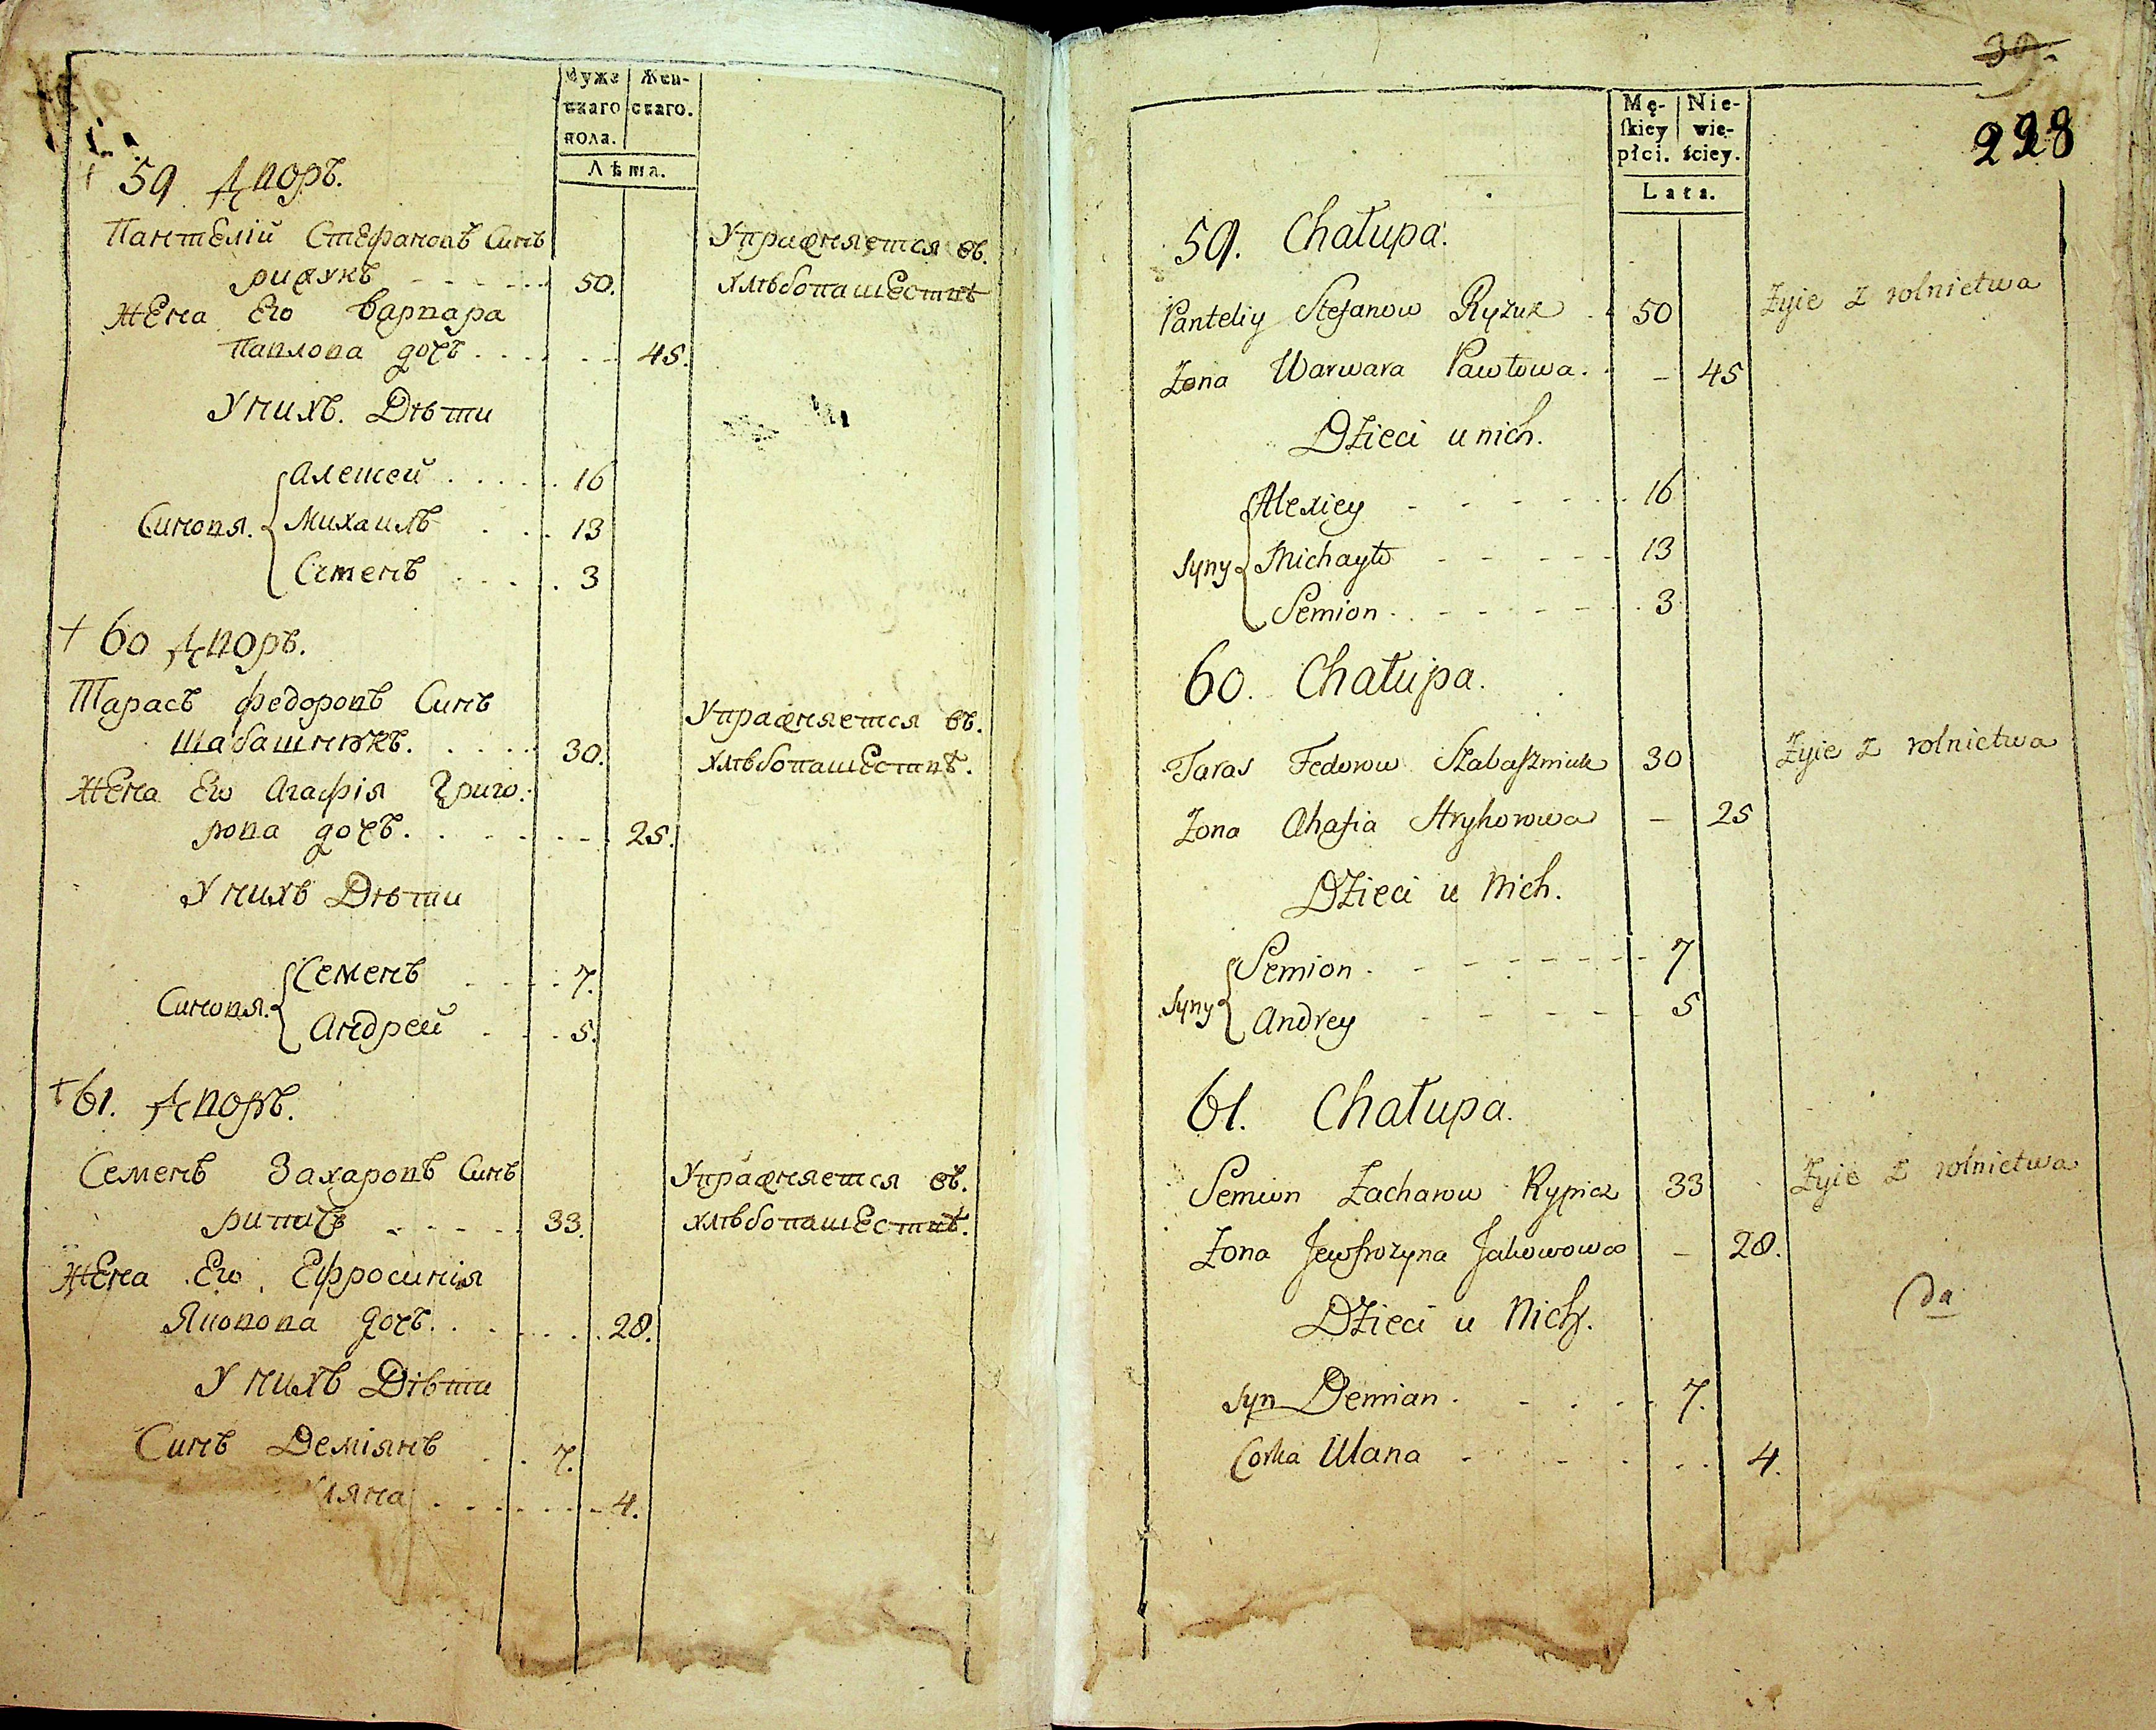 Муже Жен-
скаго скаго.
пола.
Лѣта.
59 Дворъ.
Пантелій Стефановъ Синъ
рижукъ 50.
Жена Его Варвара
Павлова дочъ 45.
У нихъ Дѣти
Алексей 16
Синовя. Михаилъ 13
Семенъ 3
Упражняется въ
хлѣбопашествѣ
+ 60 Дворъ.
Тарасъ Федоровъ Синъ
Шабашнюкъ. 30.
Жена Его Агафія Григо-
рова дочъ. 25.
У нихъ Дѣти
Семенъ 7.
Синовя. Андрей 5.
Упражняется въ
хлѣбопашествѣ.
+ 61. Дворъ.
Семенъ Захаровъ Синъ
рипичъ 33.
Жена Его Ефросинія
Яковова дочъ. 28.
У нихъ Дѣти
Синъ Деміянъ 7.
ляна 4.
Упражняется въ
хлѣбопашествѣ.
39.
228
Mę- Nie-
skiey wie-
płci. ściey.
Lata.
59. Chałupa.
Panteliy Stefanow Ryżuk 50 Żyie z rolnictwa
Żona Warwara Pawłowa. - 45
Dzieci u nich.
Alexiey 16
Syny Michayło 13
Semion 3
60. Chałupa.
Taras Fedorow Szabaszniuk 30 Żyie z rolnictwa
Żona Ahafia Hryhorowa - 25
Dzieci u Nich.
Semion 7
Syny Andrey 5
61. Chałupa.
Semion Zacharow Rypicz 33 Żyie z rolnictwa
Żona Jewfrozyna Jakowowa - 28.
Dzieci u Nich.
da
Syn Demian 7.
Corka Ulana 4.